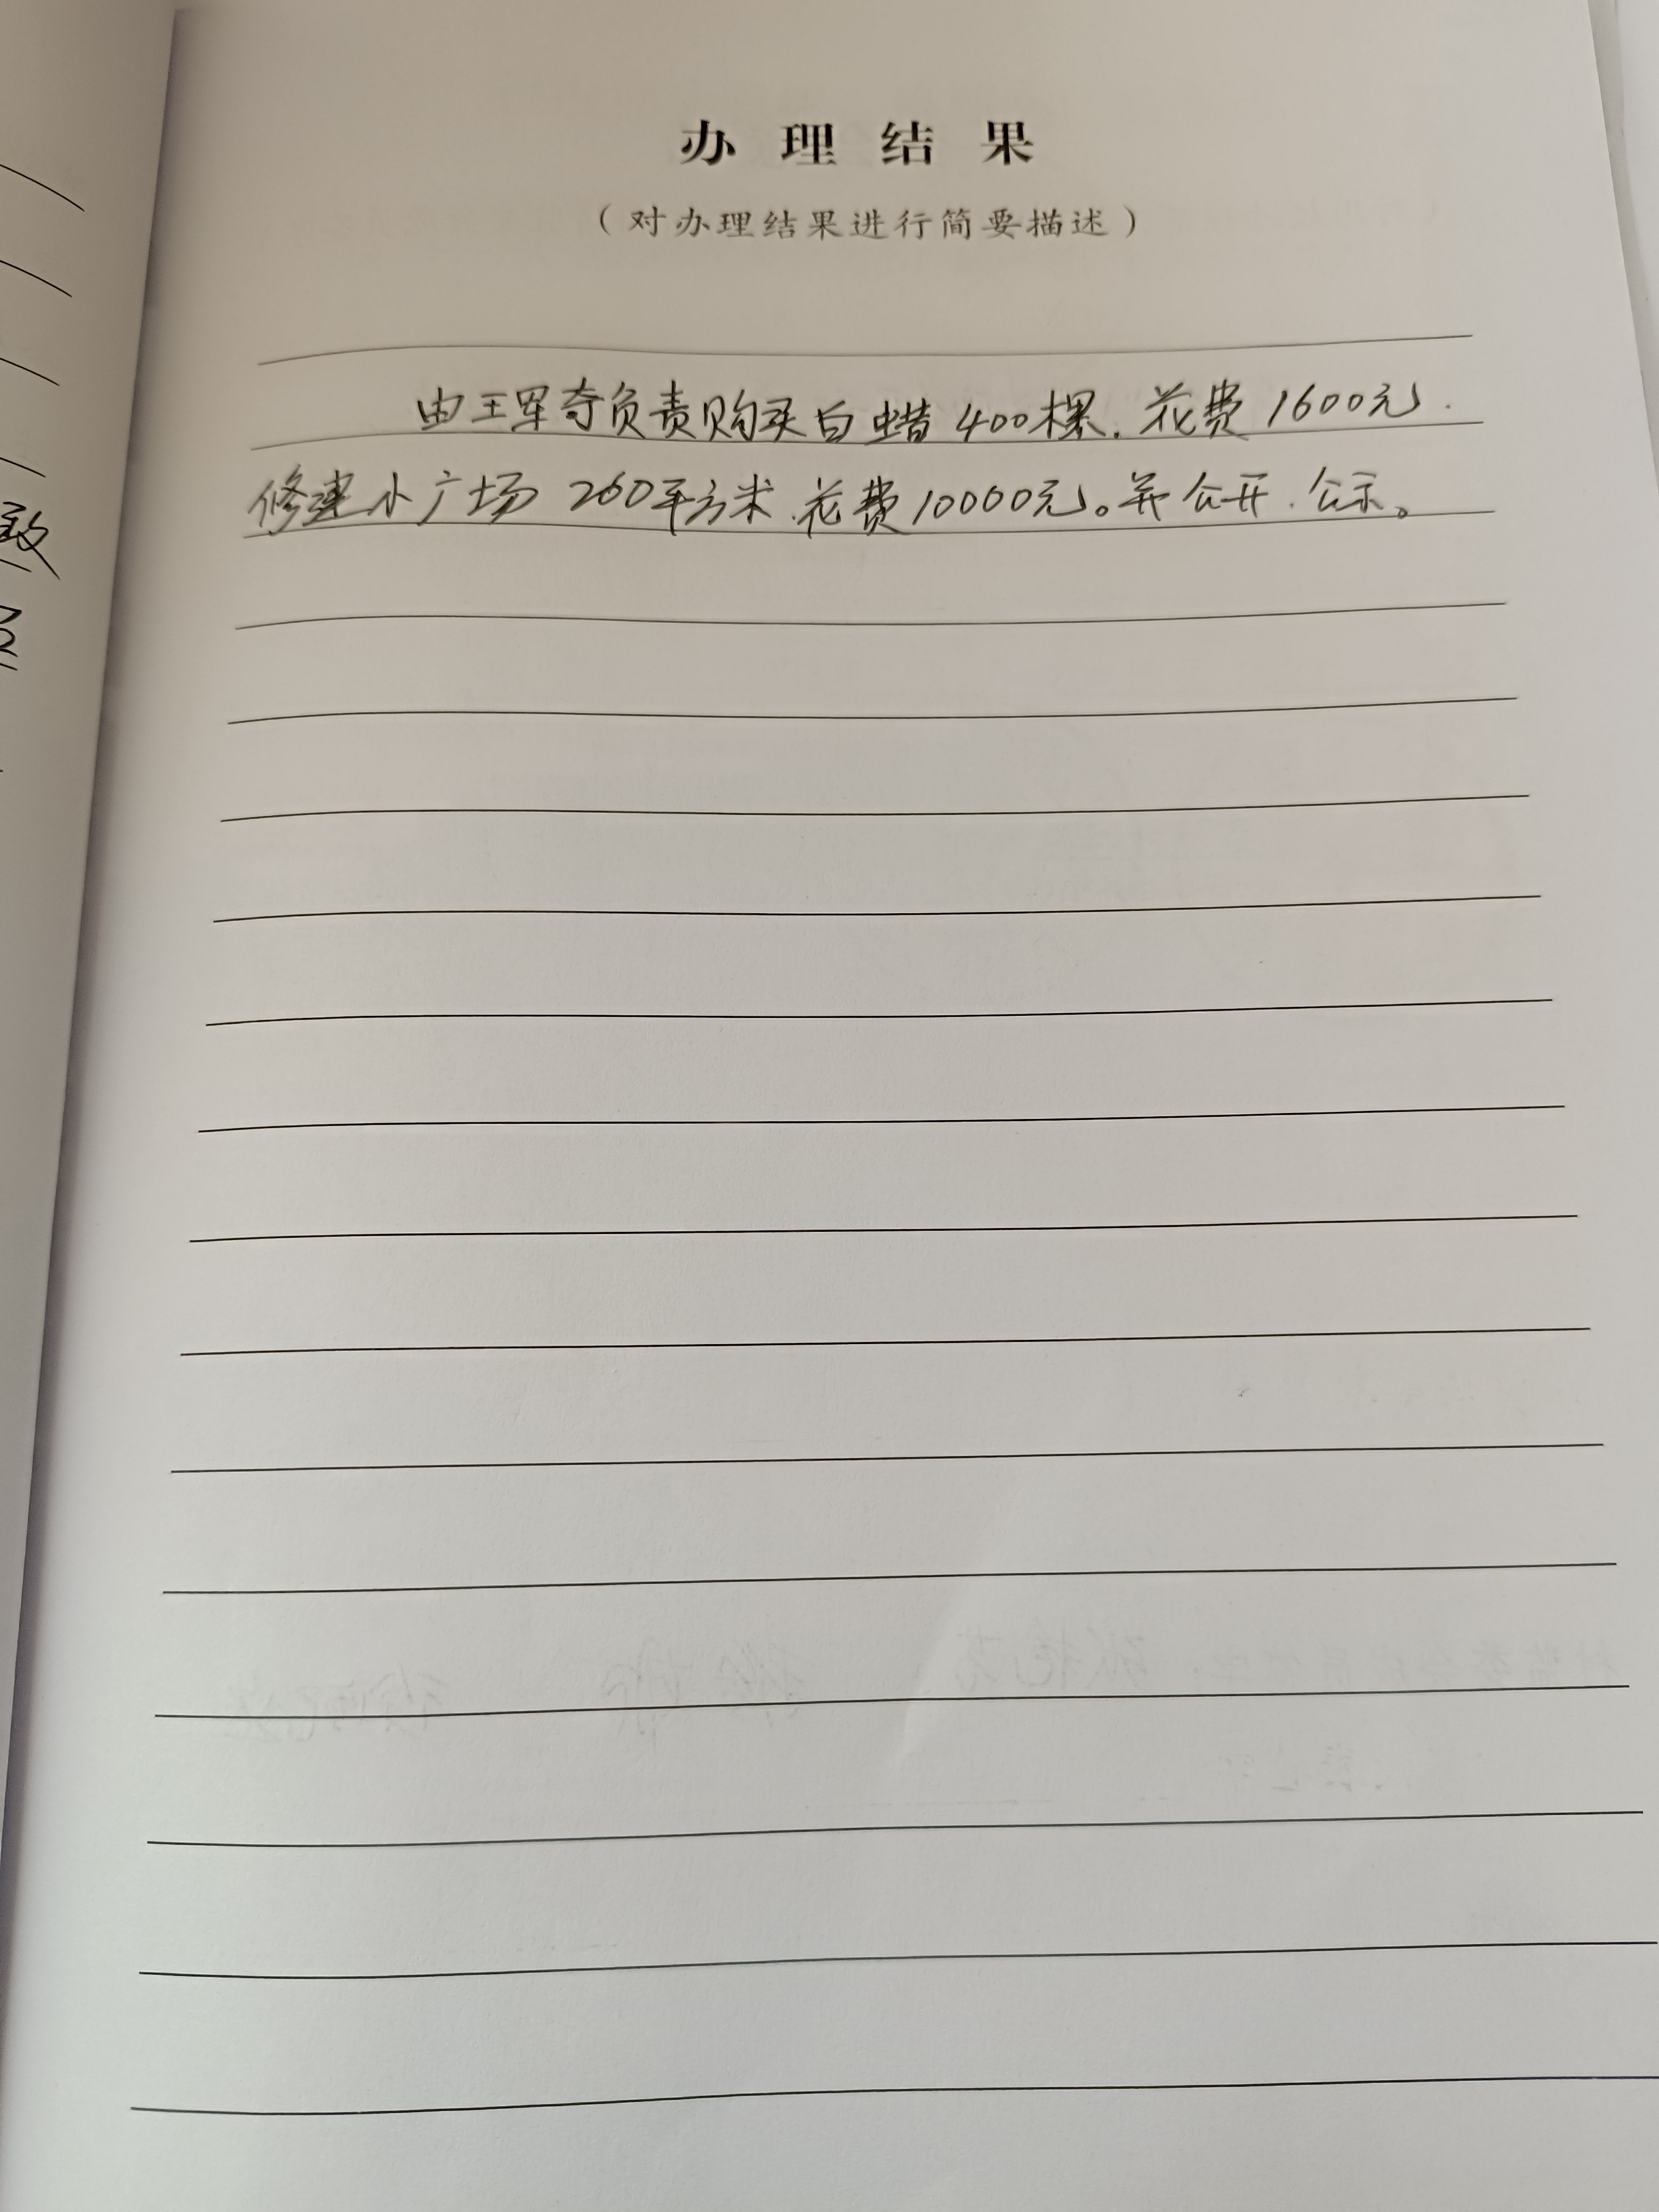 办理结果
（对办理结果进行简要描述）
由王军夺负责购买白蜡400棵.花费1600元.
修建小广场260平方米.花费10000元。并公开.公示。
致